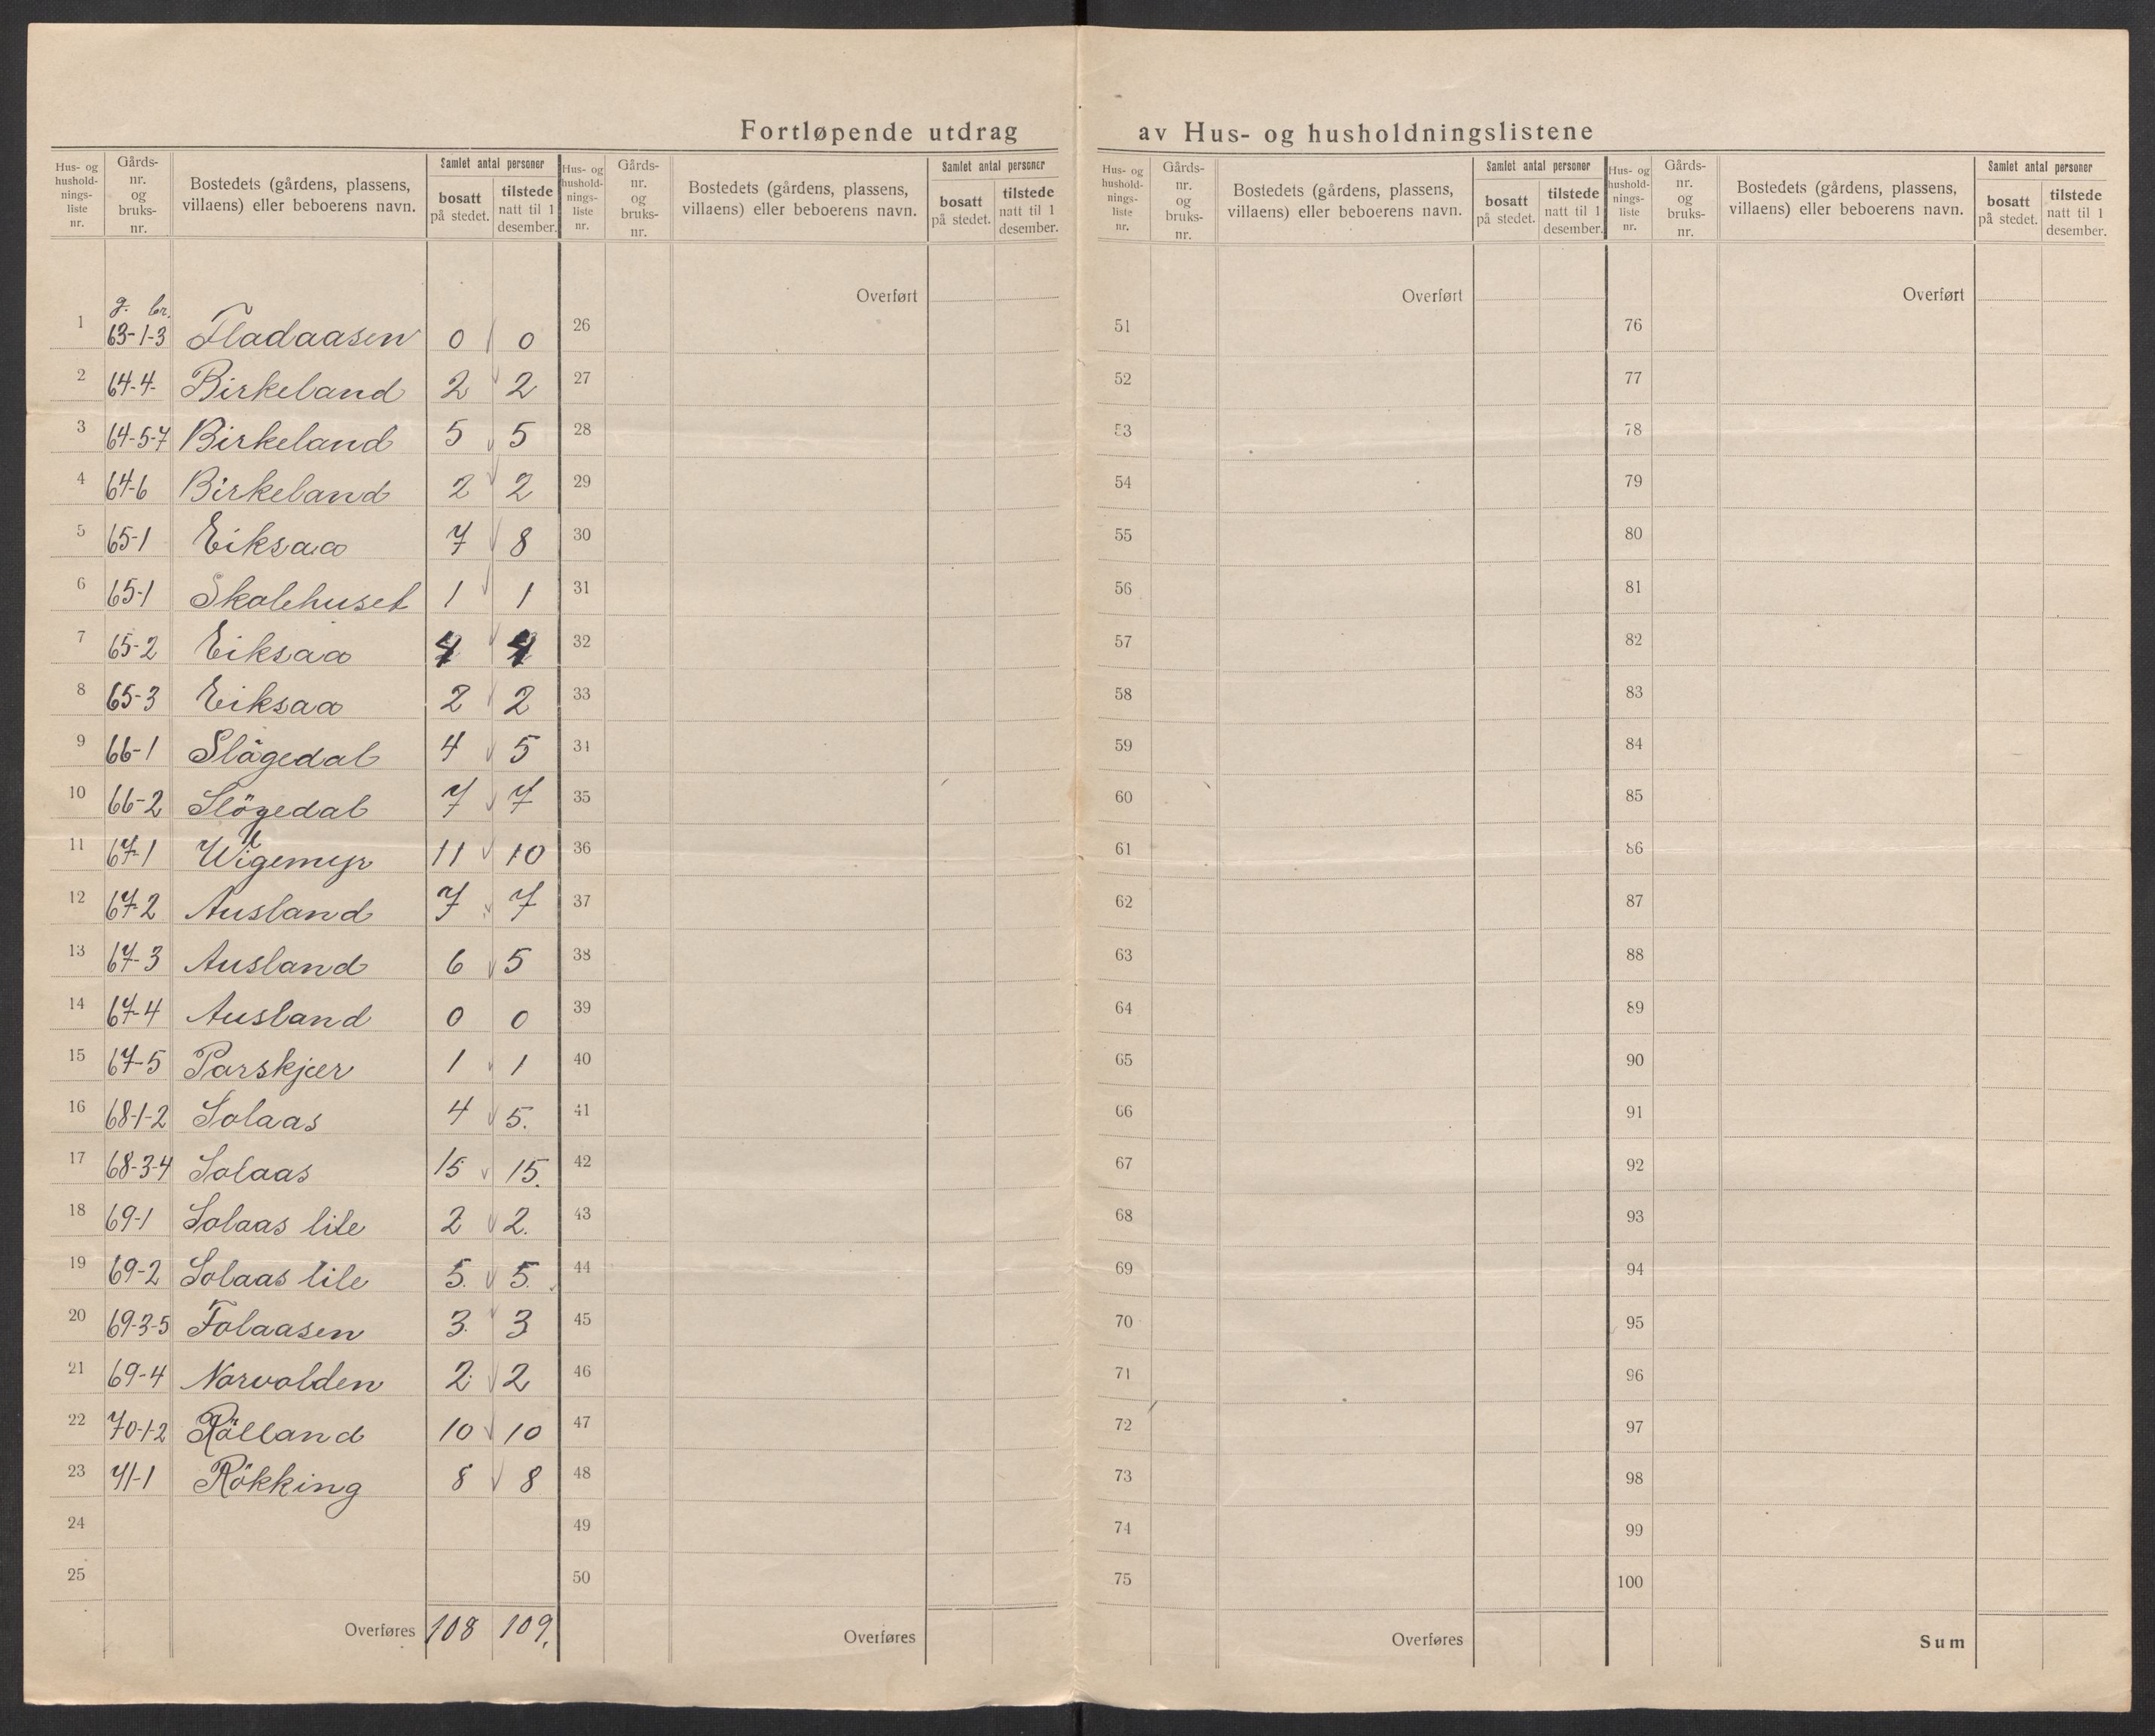 Fortløpende utdrag av Hus- og husholdningslistene
Hus- og husholdnings-liste nr. | Gårds-nr. og bruks-nr. | Bostedets (gårdens, plassens, villaens) eller beboerens navn. | Samlet antal personer | bosatt på stedet. | tilstede natt til 1 desember.
Hus- og husholdnings-liste nr. | Gårds-nr. og bruks-nr. | Bostedets (gårdens, plassens, villaens) eller beboerens navn. | Samlet antal personer | bosatt på stedet. | tilstede natt til 1 desember.
Hus- og husholdnings-liste nr. | Gårds-nr. og bruks-nr. | Bostedets (gårdens, plassens, villaens) eller beboerens navn. | Samlet antal personer | bosatt på stedet. | tilstede natt til 1 desember.
Hus- og husholdnings-liste nr. | Gårds-nr. og bruks-nr. | Bostedets (gårdens, plassens, villaens) eller beboerens navn. | Samlet antal personer | bosatt på stedet. | tilstede natt til 1 desember.
Overført Overført Overført
g. br.
1 63-1-3 Fladaasen 0 0 26 51 76
2 64-4- Birkeland 2 2 27 52 77
3 64-5-7 Birkeland 5 5 28 53 78
4 64-6 Birkeland 2 2 29 54 79
5 65-1 Eiksaa 7 8 30 55 80
6 65-1 Skolehuset 1 1 31 56 81
7 65-2 Eiksaa 4 4 32 57 82
8 65-3 Eiksaa 2 2 33 58 83
9 66-1 Slögedal 4 5 34 59 84
10 66-2 Slögedal 7 7 35 60 85
11 67-1 Wigemyr 11 10 36 61 86
12 67-2 Ausland 7 7 37 62 87
13 67-3 Ausland 6 5 38 63 88
14 67-4 Ausland 0 0 39 64 89
15 67-5 Parskjær 1 1 40 65 90
16 68-1-2 Solaas 4 5. 41 66 91
17 68-3-4 Solaas 15 15. 42 67 92
18 69-1 Solaas lile 2 2. 43 68 93
19 69-2 Solaas lile 5. 5. 44 69 94
20 69-3-5 Folaasen 3. 3 45 70 95
21 69-4 Norvolden 2 2 46 71 96
22 70-1-2 Rölland 10 10 47 72 97
23 71-1 Rökking 8 8 48 73 98
24 49 74 99
25 50 75 100
Overføres 108 109. Overføres Overføres Sum